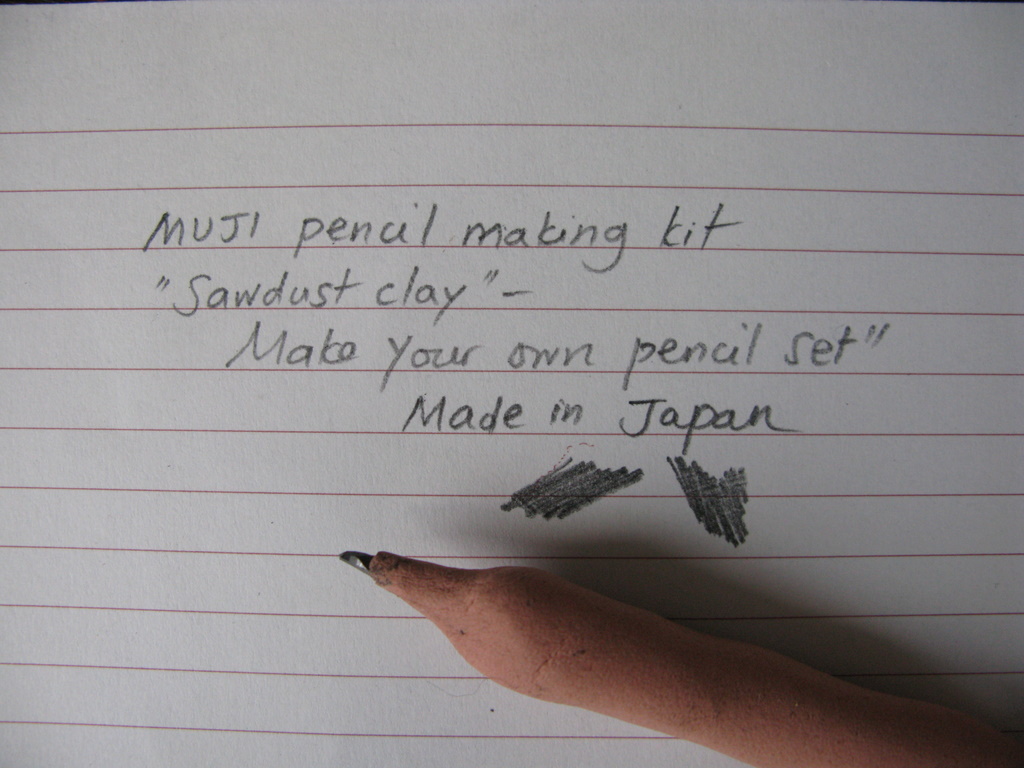 MUJI pencil making kit
"Sawdust clay" –
Make your own pencil set"
Made in Japan